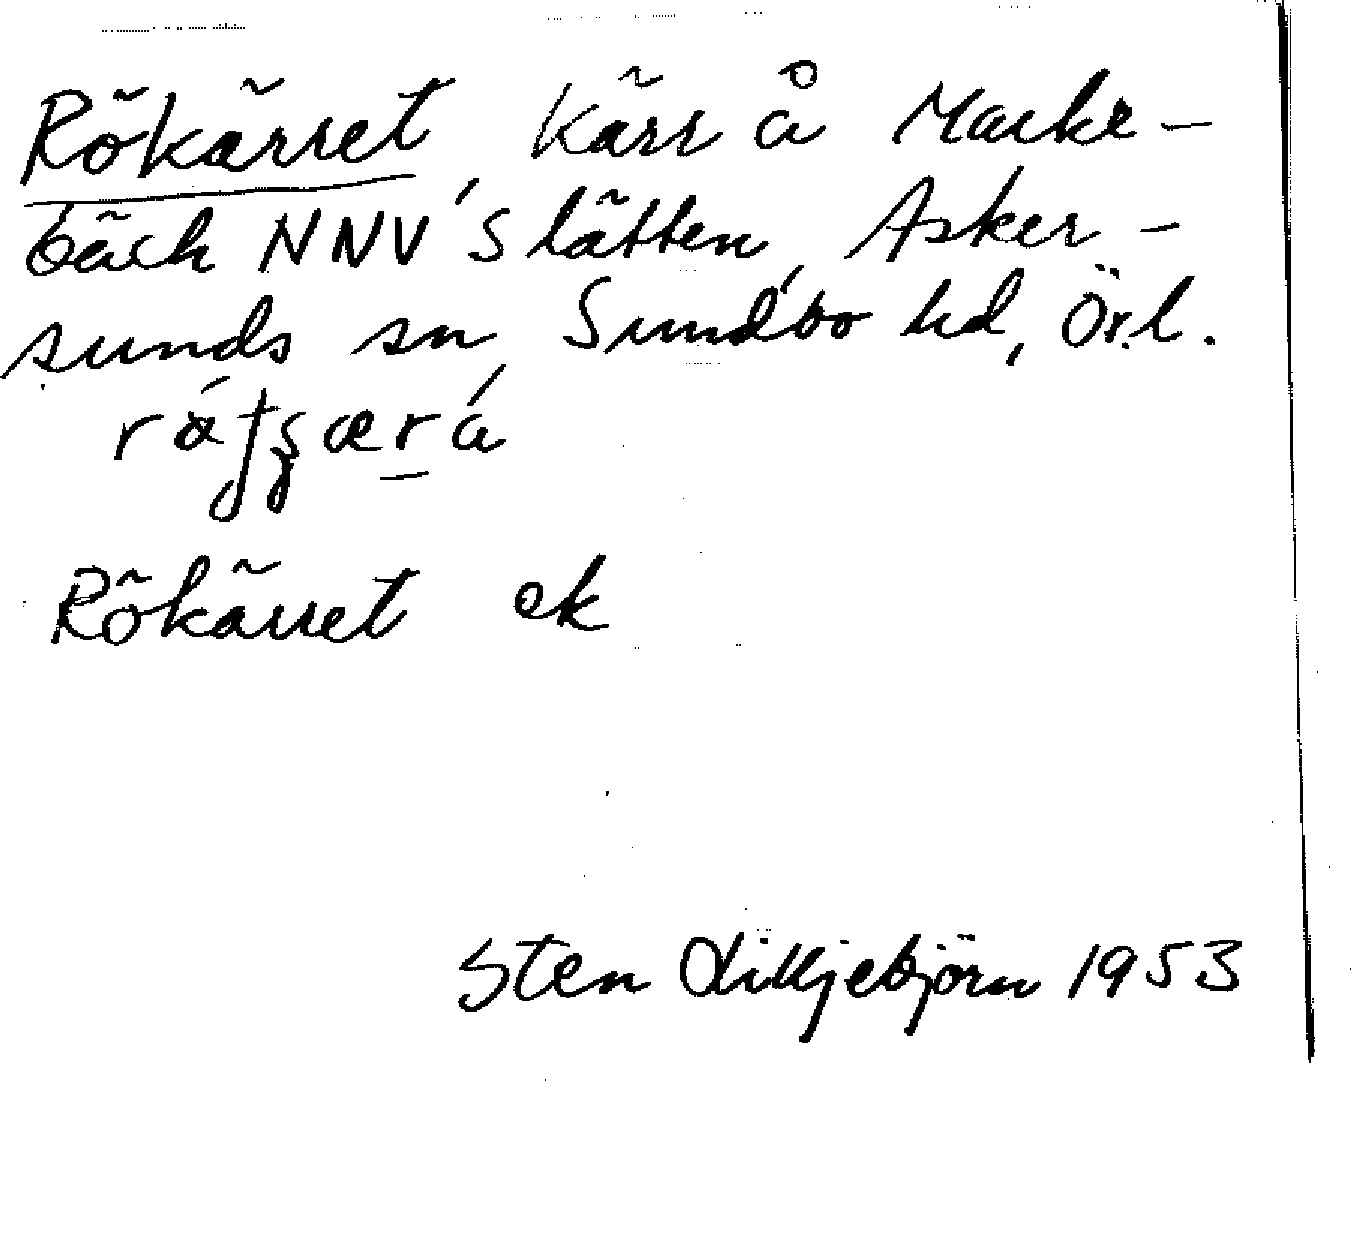 Rökärret, Kärr å Marke-
bäck NNV Slätten, Asker-
sunds sn, Sundbo hd, Örl.
Rökärret ek
Sten Liljebjörn 1953